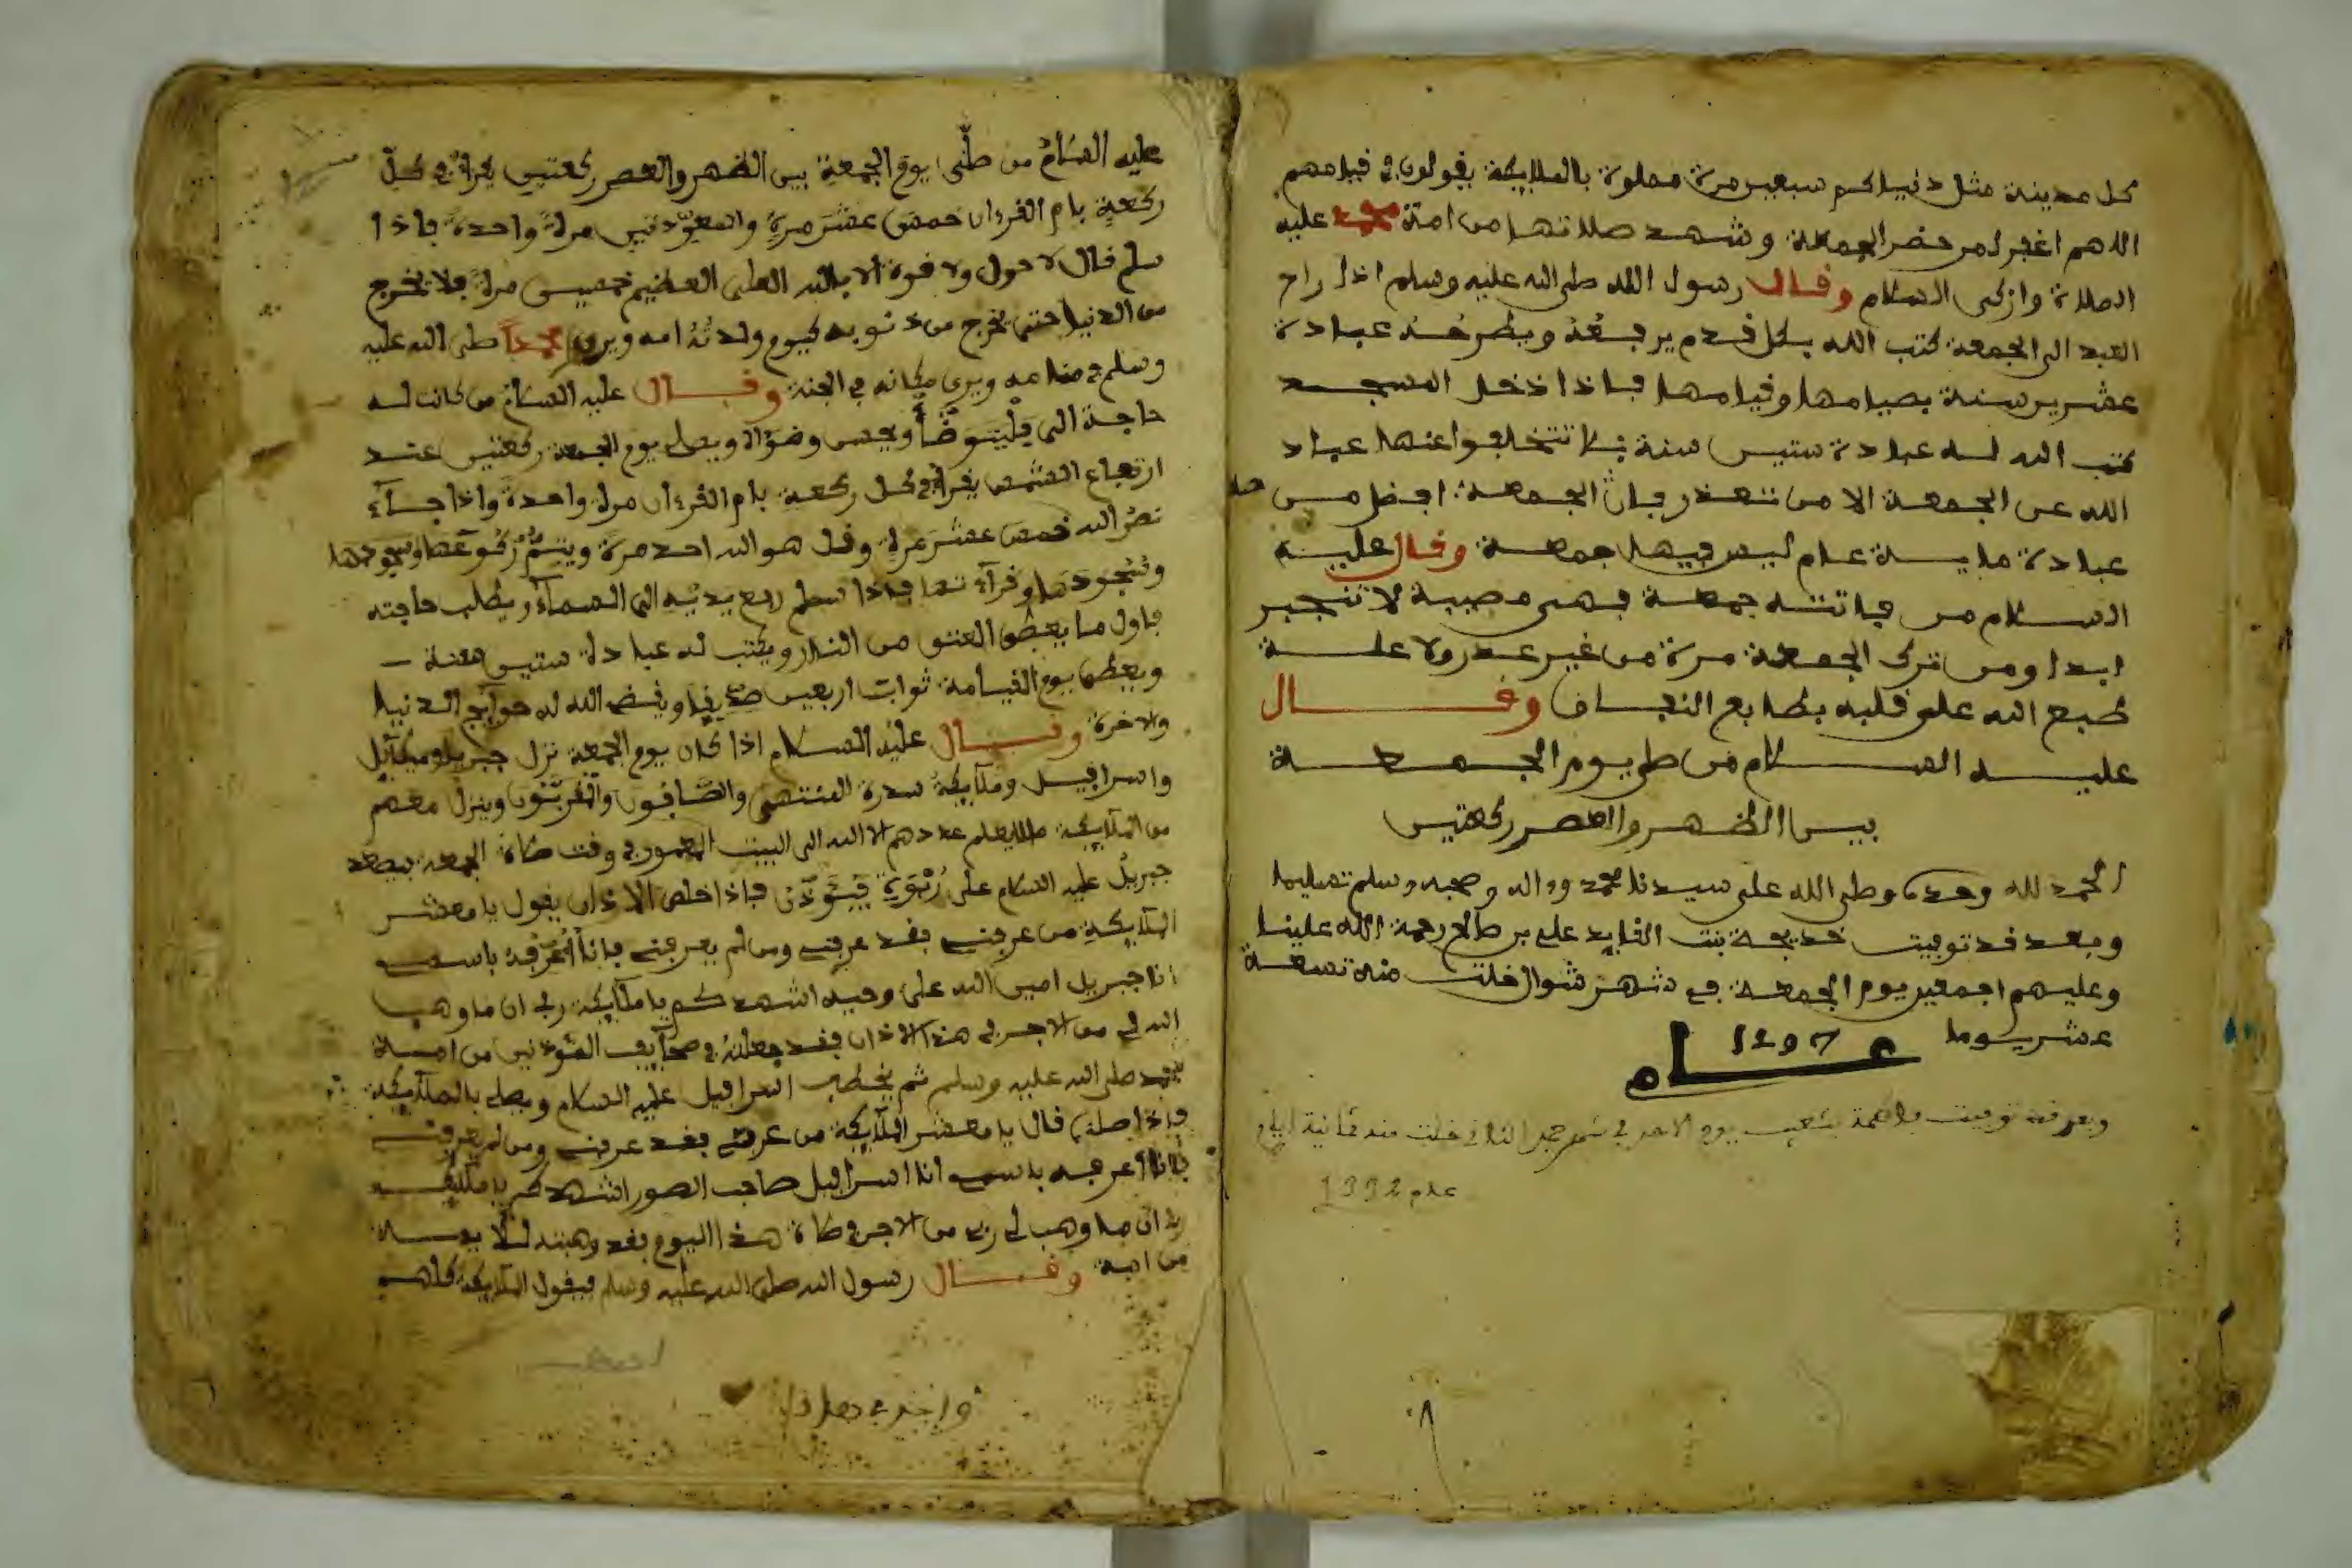 كل مدينة مثل دنياكم سبعين مرة مملوة بالملايكة يقولون في قيامهم
اللهم اغفر لمن حضر الجمعة وشهد صلاتها من امة محمد عليه
الصلاة وازكى السلام وقال رسول الله صلى الله عليه وسلم اذا راح
العبد الى الجمعة كتب الله بكل قدم يرفعه ويطرحه عبادة
عشرين سنة بصيامها وقيامها فاذا دخل المسجد
كتب الله له عبادة ستين سنة فلا تتخلفوا عنها عباد
الله عن الجمعة الا من تعذر فان الجمعة افضل من
عبادة ماية عام ليس فيها جمعة وقال عليه
السلام من فاتته جمعة فهى مصيبة لا تنجبر
ابدا ومن ترك الجمعة مرة من غير عذر ولا علة
طبع الله على قلبه بطابع النفاق وقال
عليه السلام من صلى يوم الجمعة
بين الظهر والعصر ركعتين
الحمد لله وحده وصلى الله على سيدنا محمد وءاله وصحبه وسلم تسليما
وبعد قد توفيت خديجة بنت القايد علي بن صالح رحمة الله علينا
وعليهم اجمعين يوم الجمعة في شهر شوال خلت منه تسعة
عشر يوما عام 1297
وبعد قد توفيت فاطمة بشعيب يوم الاحد في شهر جمد الثاني خلت منه ثمانية ايام
عام 1332
عليه السلام من صلى يوم الجمعة بين الظهر والعصر ركعتين يقرا في كل
ركعة بام القرءان خمس عشر مرة والمعوذتين مرة واحدة فاذا
سلم قال لا حول ولا قوة الا بالله العلى العظيم خمسين مرة فلا يخرج
من الدنيا حتى يخرج من ذنوبه كيوم ولدته امه ويرى محمدا صلى الله عليه
وسلم في منامه ويرى مكانه في الجنة وقال عليه السلام من كانت له
حاجة الى فليتوضأ ويحسن وضوءه ويصل يوم الجمعة ركعتين عند
ارتفاع الشمس يقرا في كل ركعة بام القرءان مرة واحدة واذا جاء
نصر الله خمس عشر مرة وقل هو الله احد مرة ويتم ركوعها وسجودها
وسجودها وقرآءتها فاذا سلم رفع يديه الى السمآء ويطلب حاجته
فاول ما يعطى العتق من النار ويكتب له عبادة ستين سنة
ويعطى يوم القيامة ثواب اربعين صديقا ويقض الله له حوآيج الدنيا
والاخرة وقال عليه السلام اذا كان يوم الجمعة نزل جبريل وميكآيل
واسرافيل وملآيكة سدرة المنتهى والصافون والمقربون وينزل معهم
من الملآيكة ما لا يعلم عددهم الا الله الى البيت المعمور في وقت صلاة الجمعة فيصعد
جبريل عليه السلام على ربوة فيؤذن فاذا خلص الاذان يقول يا معشر
الملآيكة من عرفني فقد عرفني ومن لم يعرفني فانا اعرفه باسمي
انا جبريل امين الله على وحيه اشهدكم يا ملآيكة ربي ان ما وهب
الله لي من الاجر في هذا الاذان فقد جعلته في صحآيف المؤذنين من امة
محمد صلى الله عليه وسلم ثم يخطب اسرافيل عليه السلام ويصلي بالملآيكة
فاذا صلى قال يا معشر الملآيكة من عرفني فقد عرفني ومن لم يعرفني
فانا اعرفه باسمي انا اسرافيل صاحب الصور اشهدكم يا ملآيكة
ربي ان ما وهب لي ربي من الاجر في صلاة هذا اليوم فقد وهبته
من امة وقال رسول الله صلى الله عليه وسلم فيقول الملآيكة كلهم